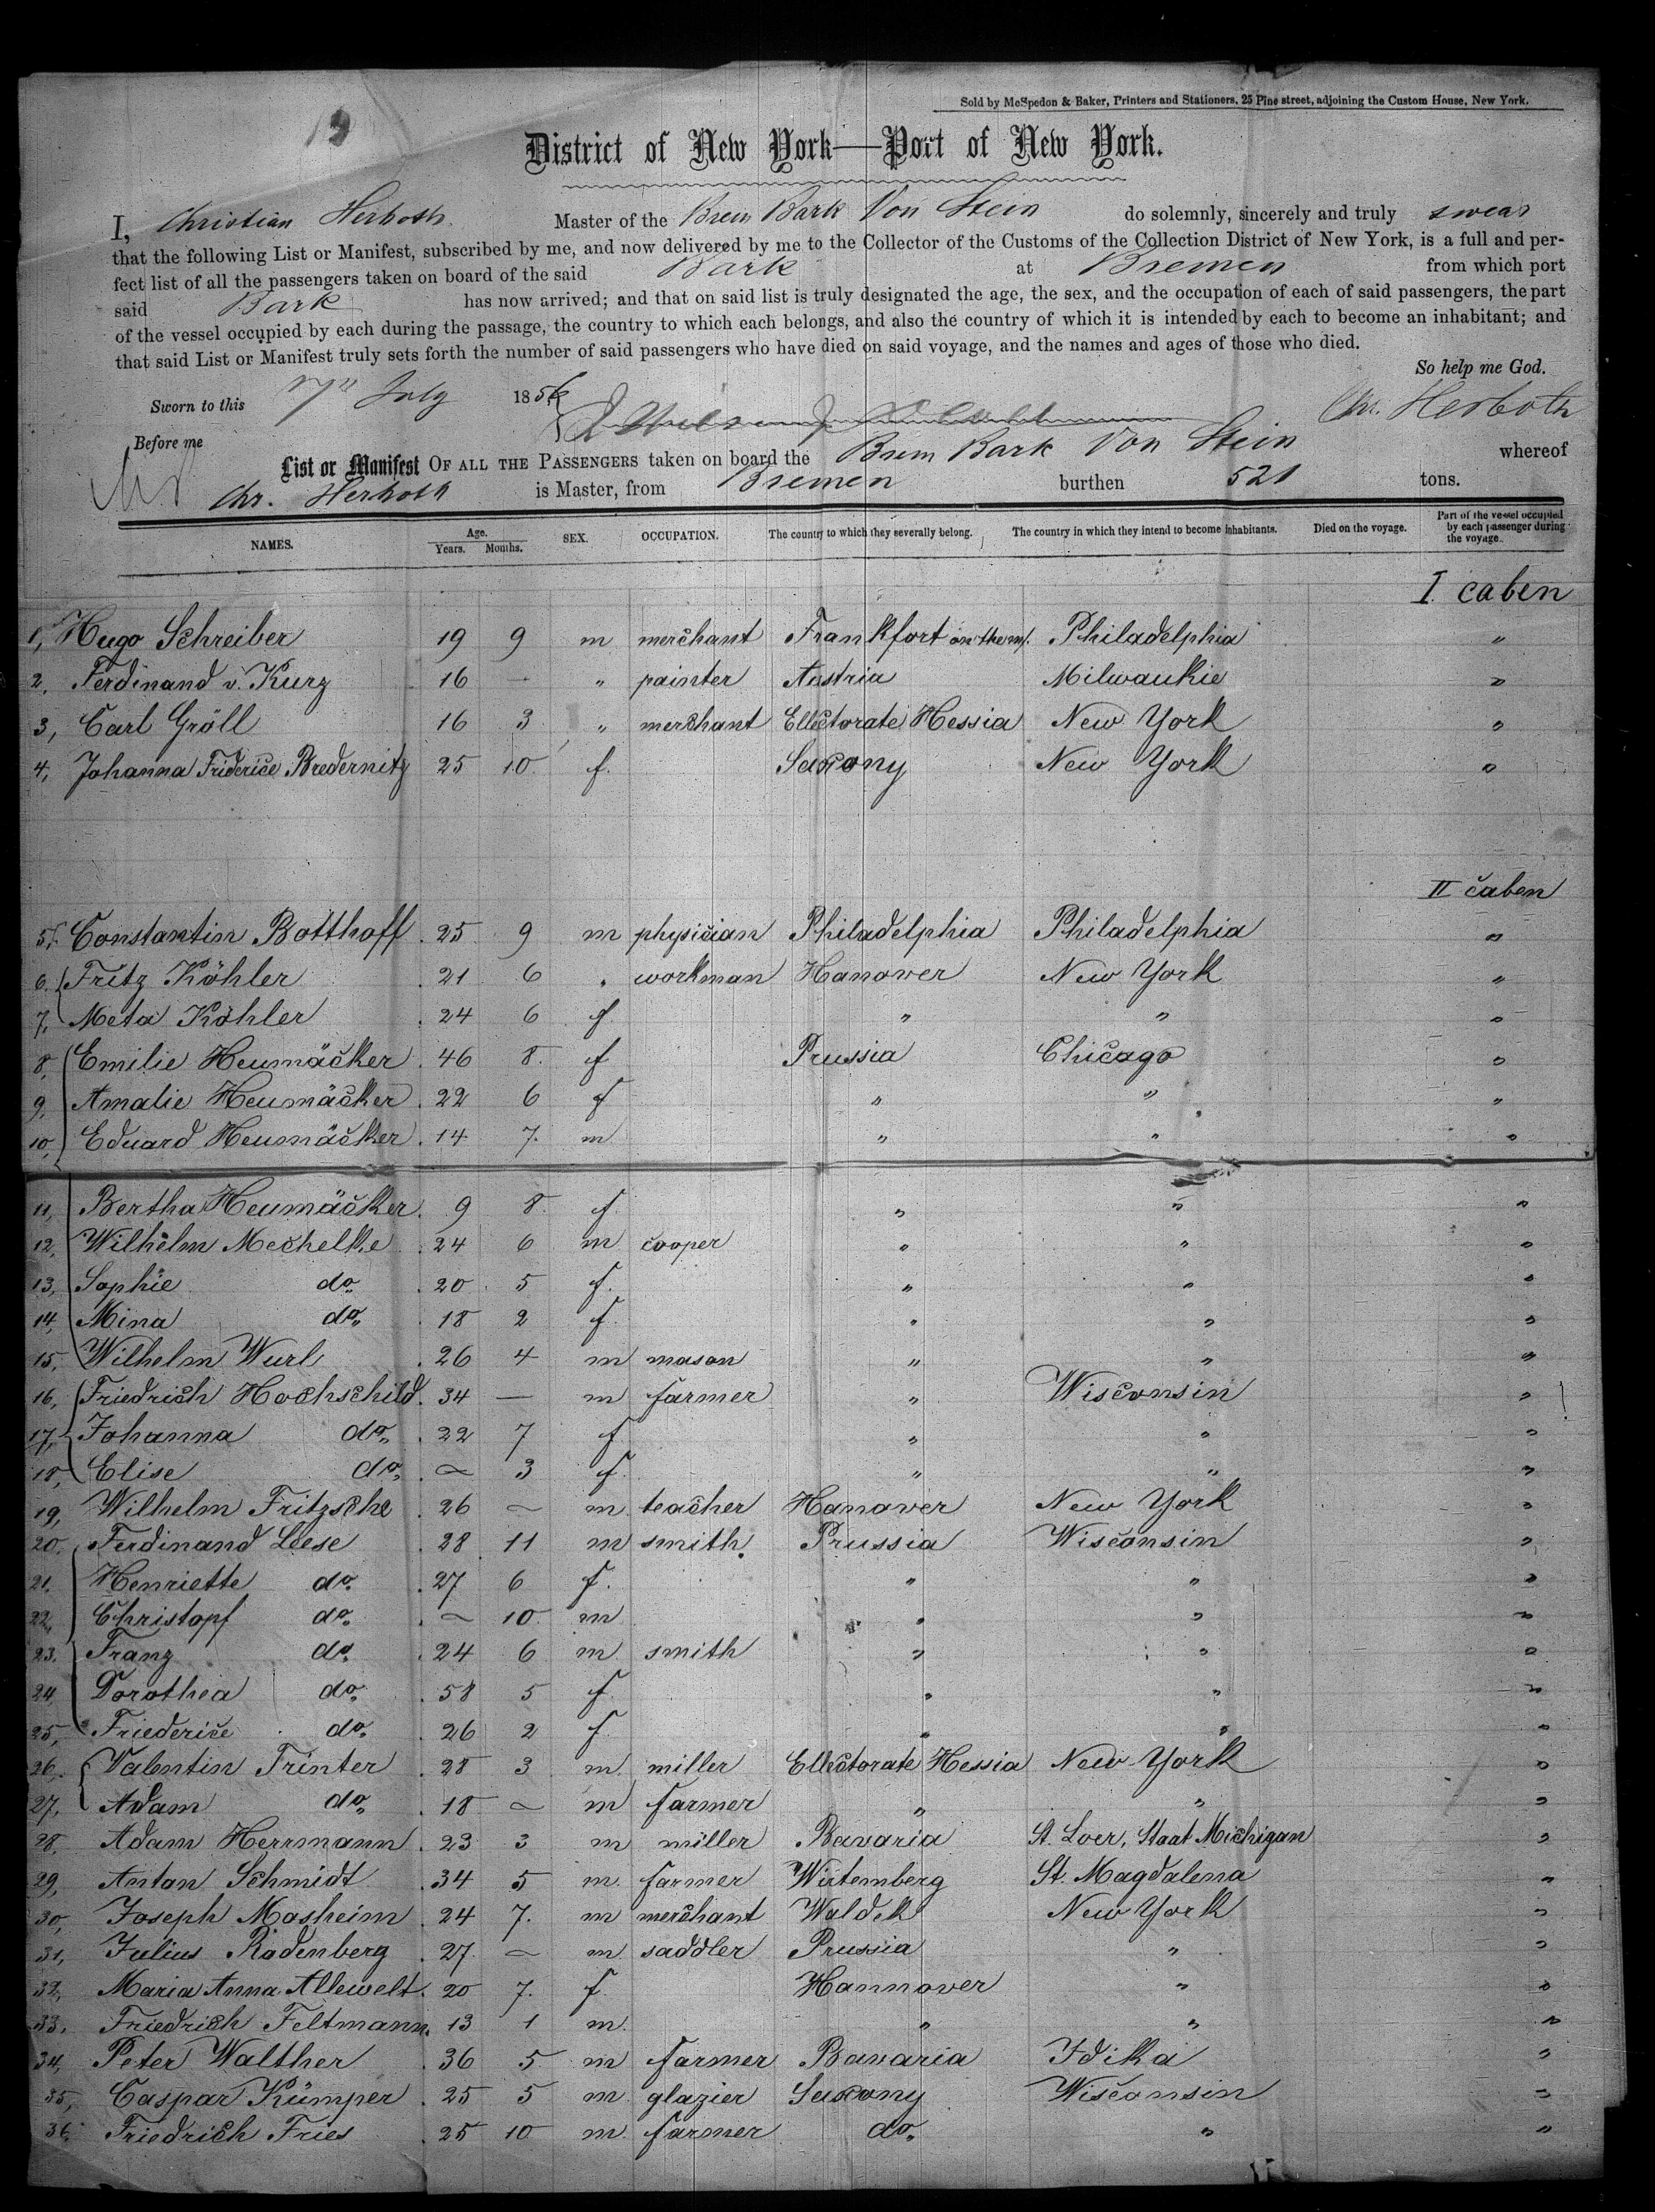 19
Sold by McSpedon & Baker, Printers and Stationers, 25 Pine street, adjoining the Custom House, New York.
District of New York—Port of New York.
I, Christian Herboth Master of the Brem Bark Von Stein do solemnly, sincerely and truly swear
that the following List or Manifest, subscribed by me, and now delivered by me to the Collector of the Customs of the Collection District of New York, is a full and per-
fect list of all the passengers taken on board of the said Bark at Bremen from which port
said Bark has now arrived; and that on said list is truly designated the age, the sex, and the occupation of each of said passengers, the part
of the vessel occupied by each during the passage, the country to which each belongs, and also the country of which it is intended by each to become an inhabitant; and
that said List or Manifest truly sets forth the number of said passengers who have died on said voyage, and the names and ages of those who died.
So help me God.
Sworn to this 7th July 1856 Chr. Herboth
Before me
List or Manifest OF ALL THE PASSENGERS taken on board the Brem Bark Von Stein whereof
Chr. Herboth is Master, from Bremen burthen 521 tons.
NAMES. Age. Years. Months. SEX. OCCUPATION. The country to which they severally belong. The country in which they intend to become inhabitants. Died on the voyage. Part of the vessel occupied by each passenger during the voyage.
I caben
1, Hugo Schreiber 19 9 m merchant Frankfort on the m. Philadelphia "
2, Ferdinand v. Kurz 16 — " painter Austria Milwaukie "
3, Carl Gröll 16 3 " merchant Ellectorate Hessia New York "
4, Johanna Friderice Bredernitz 25 10 f. Saxony New York "
II caben
5, Constantin Botthoff 25 9 m physician Philadelphia Philadelphia "
6, Fritz Köhler 21 6 " workman Hanover New York "
7, Meta Köhler 24 6 f " " "
8, Emilie Heumäcker 46 8 f Prussia Chicago "
9, Amalie Heumäcker 22 6 f " " "
10, Eduard Heumäcker 14 7 m " " "
11, Bertha Heumäcker 9 8 f. " " "
12, Wilhelm Mechelke 24 6 m cooper " " "
13, Sophie do. 20 5 f. " " "
14, Mina do. 18 2 f. " " "
15, Wilhelm Wurl 26 4 m mason " " "
16, Friedrich Hochschild 34 — m farmer " Wisconsin "
17, Johanna do. 22 7 f " " "
18, Elise do. — 3 f. " " "
19, Wilhelm Fritzsche 26 — m teacher Hanover New York "
20, Ferdinand Leese 28 11 m smith Prussia Wisconsin "
21, Henriette do. 27 6 f. " " "
22, Christopf do. — 10 m " " "
23, Franz do. 24 6 m smith " " "
24, Dorothea do. 58 5 f " " "
25, Friederice do. 26 2 f " " "
26, Valentin Trinter 28 3 m miller Ellectorate Hessia New York "
27, Adam do. 18 — m farmer " " "
28, Adam Herrmann 23 3 m miller Bavaria St. Loer, Staat Michigan "
29, Anton Schmidt 34 5 m farmer Würtemberg St. Magdalena "
30, Joseph Mosheim 24 7 m merchant Waldek New York "
31, Julius Rodenberg 27 — m saddler Prussia " "
32, Maria Anna Allewelt 20 7 f Hannover " "
33, Friedrich Feltmann 13 1 m. " " "
34, Peter Walther 36 5 m farmer Bavaria Idika "
35, Caspar Kümper 25 5 m glazier Saxony Wisconsin "
36, Friedrich Fries 25 10 m farmer do. " "